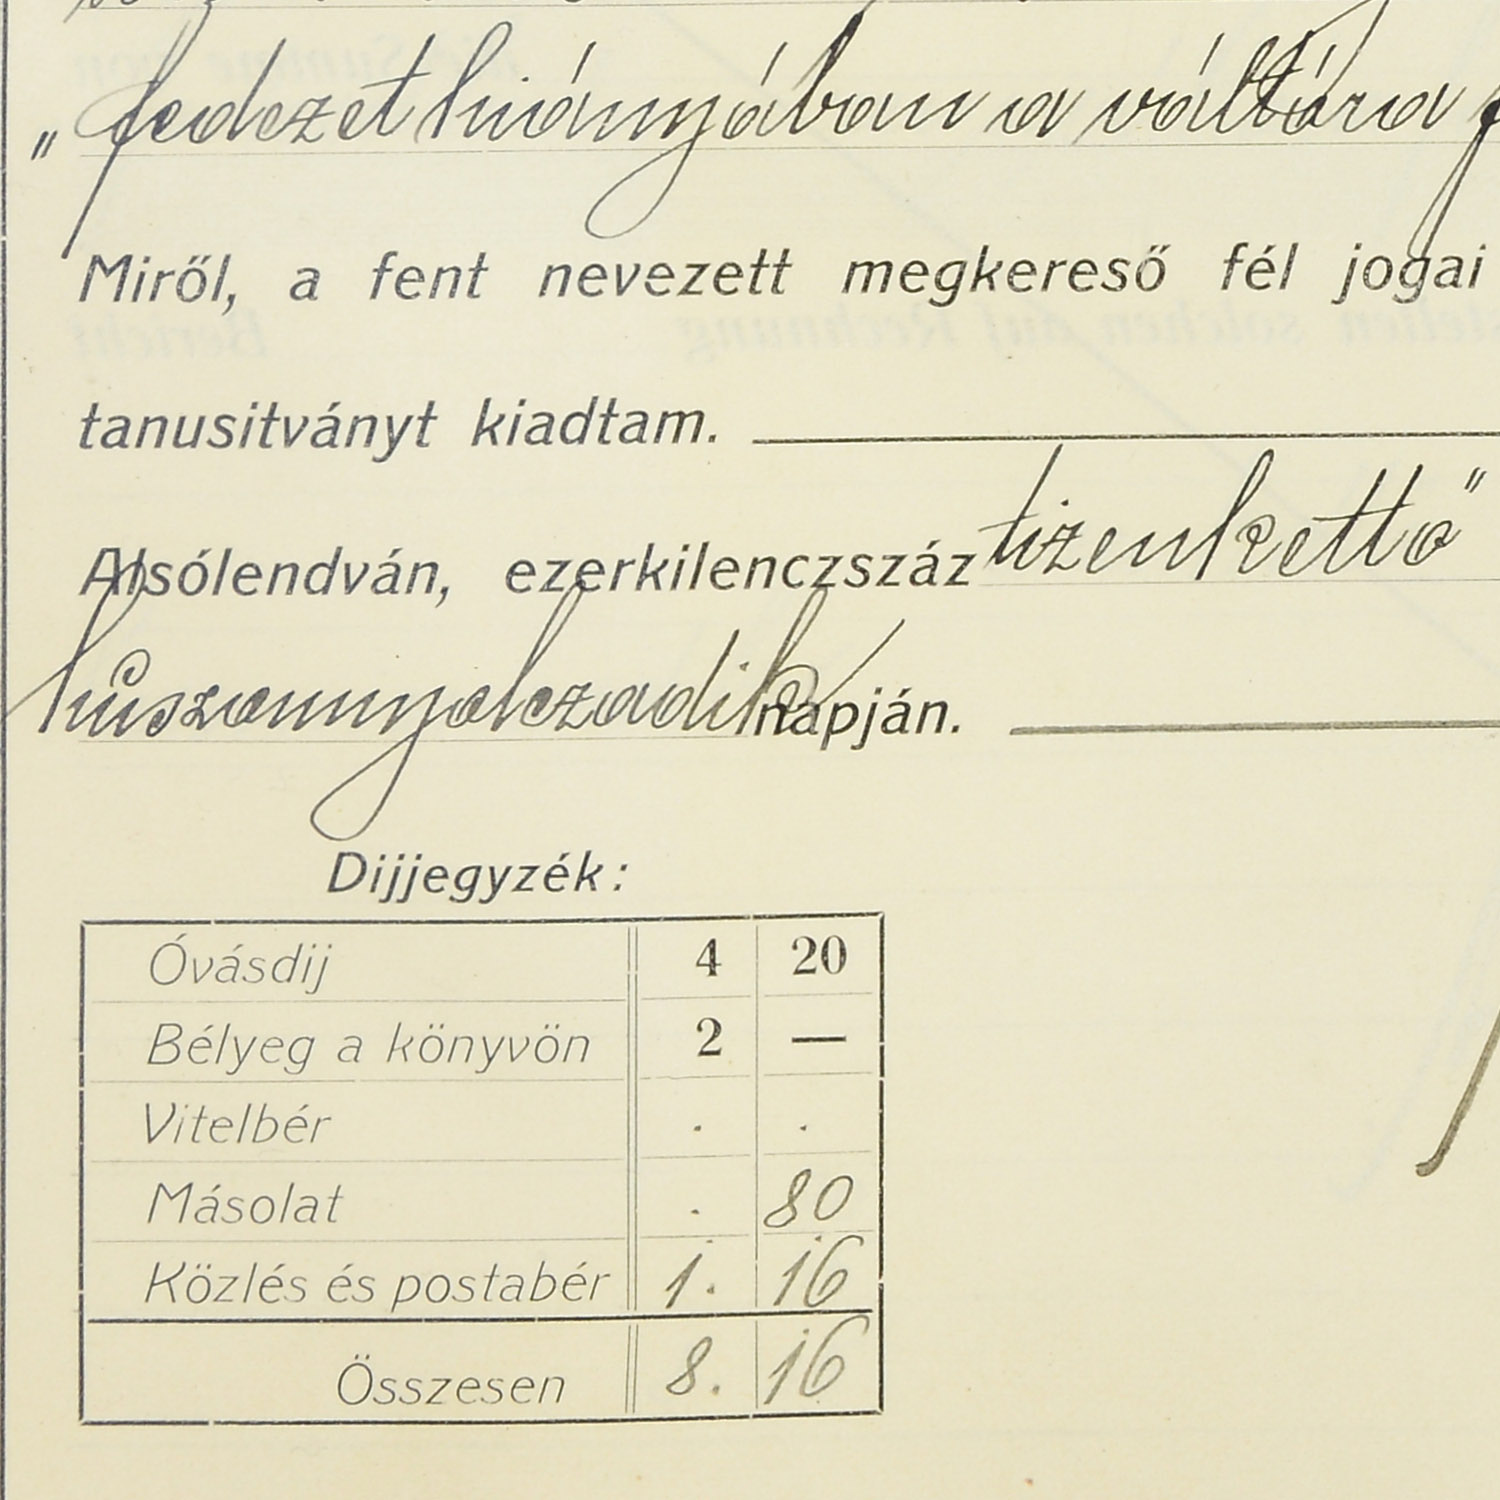 „fedezet hiányában a váltóra
Miről, a fent nevezett megkereső fél jogai
tanusitványt kiadtam.
Alsólendván, ezerkilenczszáz tizenkettő"
huszonnyolczadik napján.
Dijjegyzék:
Óvásdij 4 20
Bélyeg a könyvön 2 —
Vitelbér . .
Másolat . 80
Közlés és postabér 1. 16
Összesen 8. 16